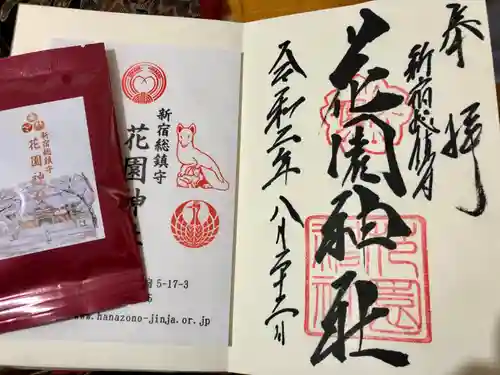 奉拝
新宿総鎮守
花園神社
令和二年八月二十二日
花園神社
新宿総鎮守
花園神社
5-17-3
www.hanazono-jinja.or.jp
新宿総鎮守
花園神社